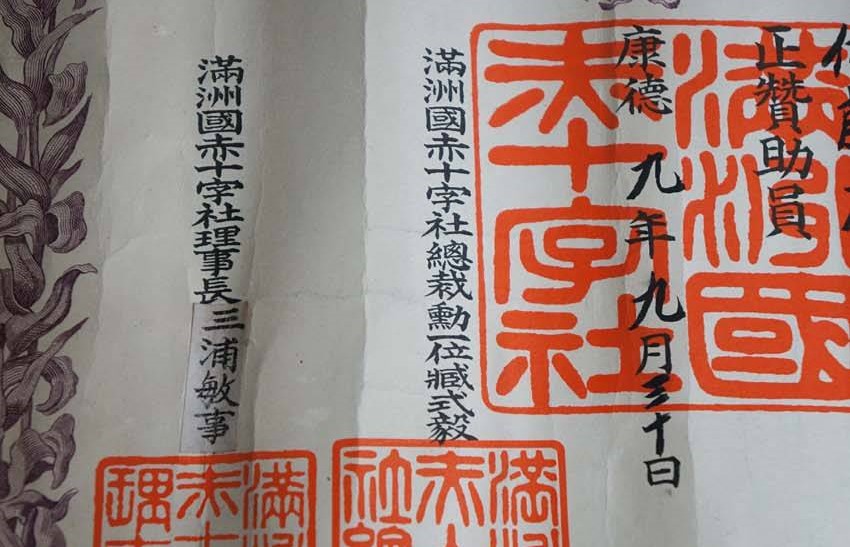 正贊助員
康德九年九月三十日
滿洲國
赤十字社
滿洲國赤十字社總裁勳一位臧式毅
滿洲國赤十字社理事長三浦敏事